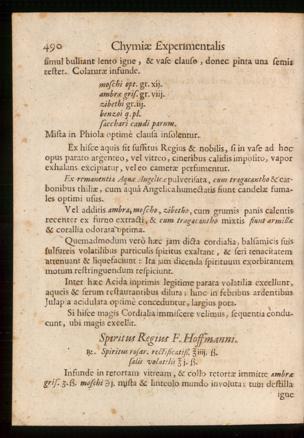 490 Chymiæ Experimentalis
simul bulliant lento igne, & vase clauso, donec pinta una semis
restet. Colaturæ infunde.
moschi opt. gr. xij.
ambræ gris. gr. viij.
zibethi gr. iij.
benzoi q. pl.
sacchari candi parum.
Mista in Phiola optimè clausa insolentur.
Ex hisce aquis fit suffitus Regius & nobilis, si in vase ad hoc
opus parato argenteo, vel vitreo, cineribus calidis imposito, vapor
exhalans excipiatur, vel eo cameræ perfumentur.
Ex remanentiis Aquæ Angelicæ pulverisata, cum tragacantho & car-
bonibus thiliæ, cum aqua Angelica humectatis fiunt candelæ fuma-
les optimi usus.
Vel additis ambra, moscho, zibetho, cum grumis panis calentis
recenter ex furno extracti, & cum tragacantho mixtis fiunt armillæ
& corallia odorata optima.
Quemadmodum verò hæc jam dicta cordialia, balsamicis suis
sulfureis volatilibus particulis spiritus exaltant, & seri tenacitatem
attenuant & liquefaciunt: Ita jam dicenda spirituum exorbitantem
motum restringuendum respiciunt.
Inter hæc Acida inprimis legitime parata volatilia excellunt,
aqueis & serum restaurantibus diluta; hinc in febribus ardentibus
Julapia acidulata optimè conceduntur, largius pota.
Si hisce magis Cordialia immiscere velimus, sequentia condu-
cunt, ubi magis excellit.
Spiritus Regius F. Hoffmanni.
℞. Spiritus rosar. rectificatiss. ℥iiij. ß.
salis volatilis ℥j. ß.
Infunde in retortam vitream, & collo retortæ immitte ambræ
gris. ʒ. ß. moschi ℈j. mista & linteolo mundo involuta: tum destilla
igne